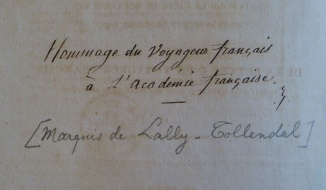 Hommage du Voyageur français
à l'académie française.
[Marquis de Lally-Tollendal]